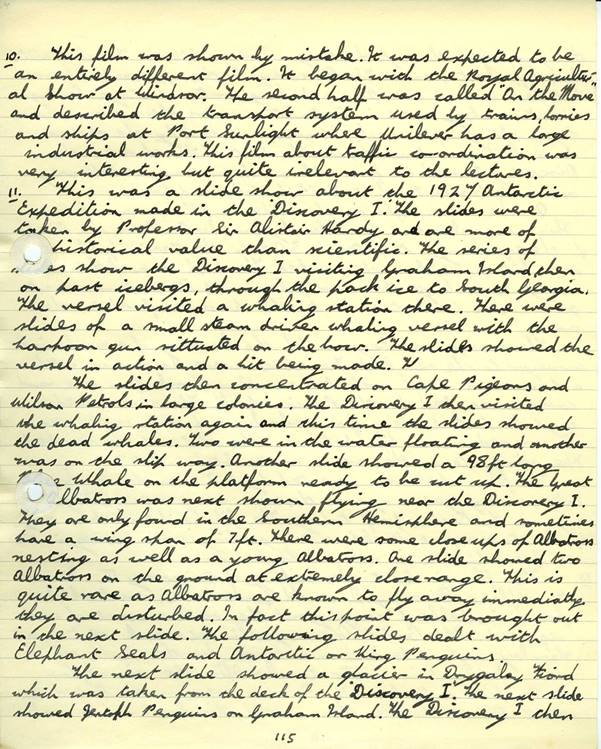 10. This film was shown by mistake. It was expected to be
an entirely different film. It began with the Royal Agricultur-
al Show at Windsor. The second half was called "On the Move"
and described the transport system used by trains, lorries
and ships at Port Sunlight where Unilever has a large
industrial works. This film about traffic co-ordination was
very interesting but quite irrelevant to the lectures.
11. This was a slide show about the 1927 Antarctic
Expedition made in the 'Discovery I'. The slides were
taken by Professor Sir Alistair Hardy and are more of
historical value than scientific. The series of
es show the Discovery I visiting Graham Island, then
on past icebergs, through the pack ice to South Georgia.
The vessel visited a whaling station there. There were
slides of a small steam driven whaling vessel with the
harpoon gun sittuated on the bow. The slides showed the
vessel in action and a hit being made.
The slides then concentrated on Cape Pigeons and
Wilson Petrols in large colonies. The Discovery I then visited
the whaling station again and this time the slides showed
the dead whales. Two were in the water floating and another
was on the slip way. Another slide showed a 98ft long
Whale on the platform ready to be cut up. The Great
Albatross was next shown flying near the Discovery I.
They are only found in the Southern Hemisphere and sometimes
have a wing span of 7ft. There were some close ups of Albatross
nesting as well as a young Albatross. One slide showed two
Albatross on the ground at extremely close range. This is
quite rare as Albatross are known to fly away immediately
they are disturbed. In fact this point was brought out
in the next slide. The following slides dealt with
Elephant Seals and Antarctic or King Penguins.
The next slide showed a glacier in Drygalsy Fiord
which was taken from the deck of the Discovery I. The next slide
showed Penguins on Graham Island. The Discovery I then
115